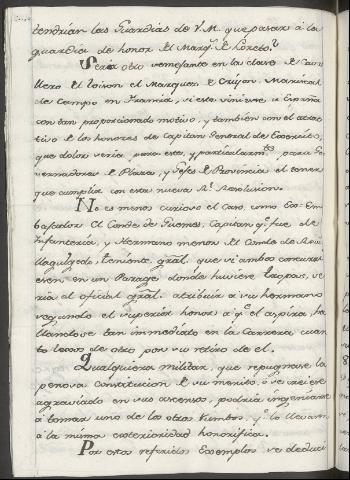 tendrian las Guardias de V.M. que pasar à la
guardia de honor del Marq.s de Loreto?
Seria otro semejante en la clase de Cava
llero del Toison el Marques de Cruyon Mariscal
de Campo en Francia, si este viniese à España
con tan proporcionado motivo, y tambien con el atrac
tivo de los honores de Capitan General de Exercito,
que dolor seria para este, y particularm.te para Go
vernadores de Plaza, y Gefes de Provincia el tener
que cumplir con esta nueva R.l Resolucion.
No es menos curioso el caso, como Ex-Em
baxador El Conde de Fuentes, Capitan q.e fue de
Infanteria, y Hermano menor del Conde de
teniente gral. que si ambos concurri
esen, en un Parage donde huviese tropas, se
ria el oficial gral. atribuir a su hermano
segundo el superior honor a q.e el aspira, ha
llandose tan inmediato en la Carrera cuan
to lexos de otro, por su retiro de el.
Qualquiera militar, que repugnase la
penosa constitucion de su merito, ò se creiese
agraviado en sus ascensos, podria ingeniarse
à tomar uno de los otros rumbos, q.e lo llevaran
à la misma exterioridad honorifica.
Por estos referidos Exemplos se deduci